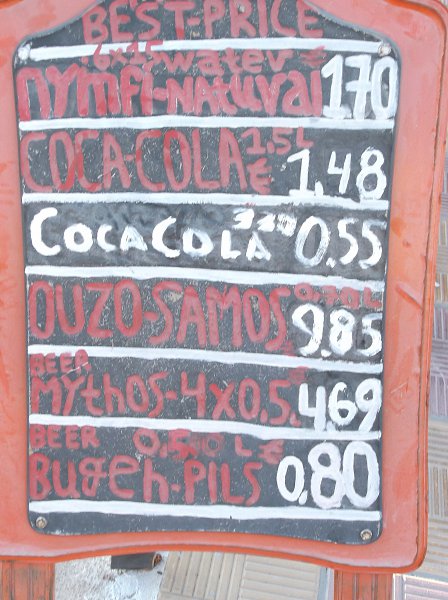 BEST-PRICE
6x15 water €
NYMFI-NATURAL 1,70
COCA-COLA 1,5L € 1,48
COCA COLA 330 0.55
OUZO-SAMOS 0.70L 9.85
BEER €
MYTHOS-4x0.5 4,69
BEER 0,500 L €
BUGEN-PILS 0,80